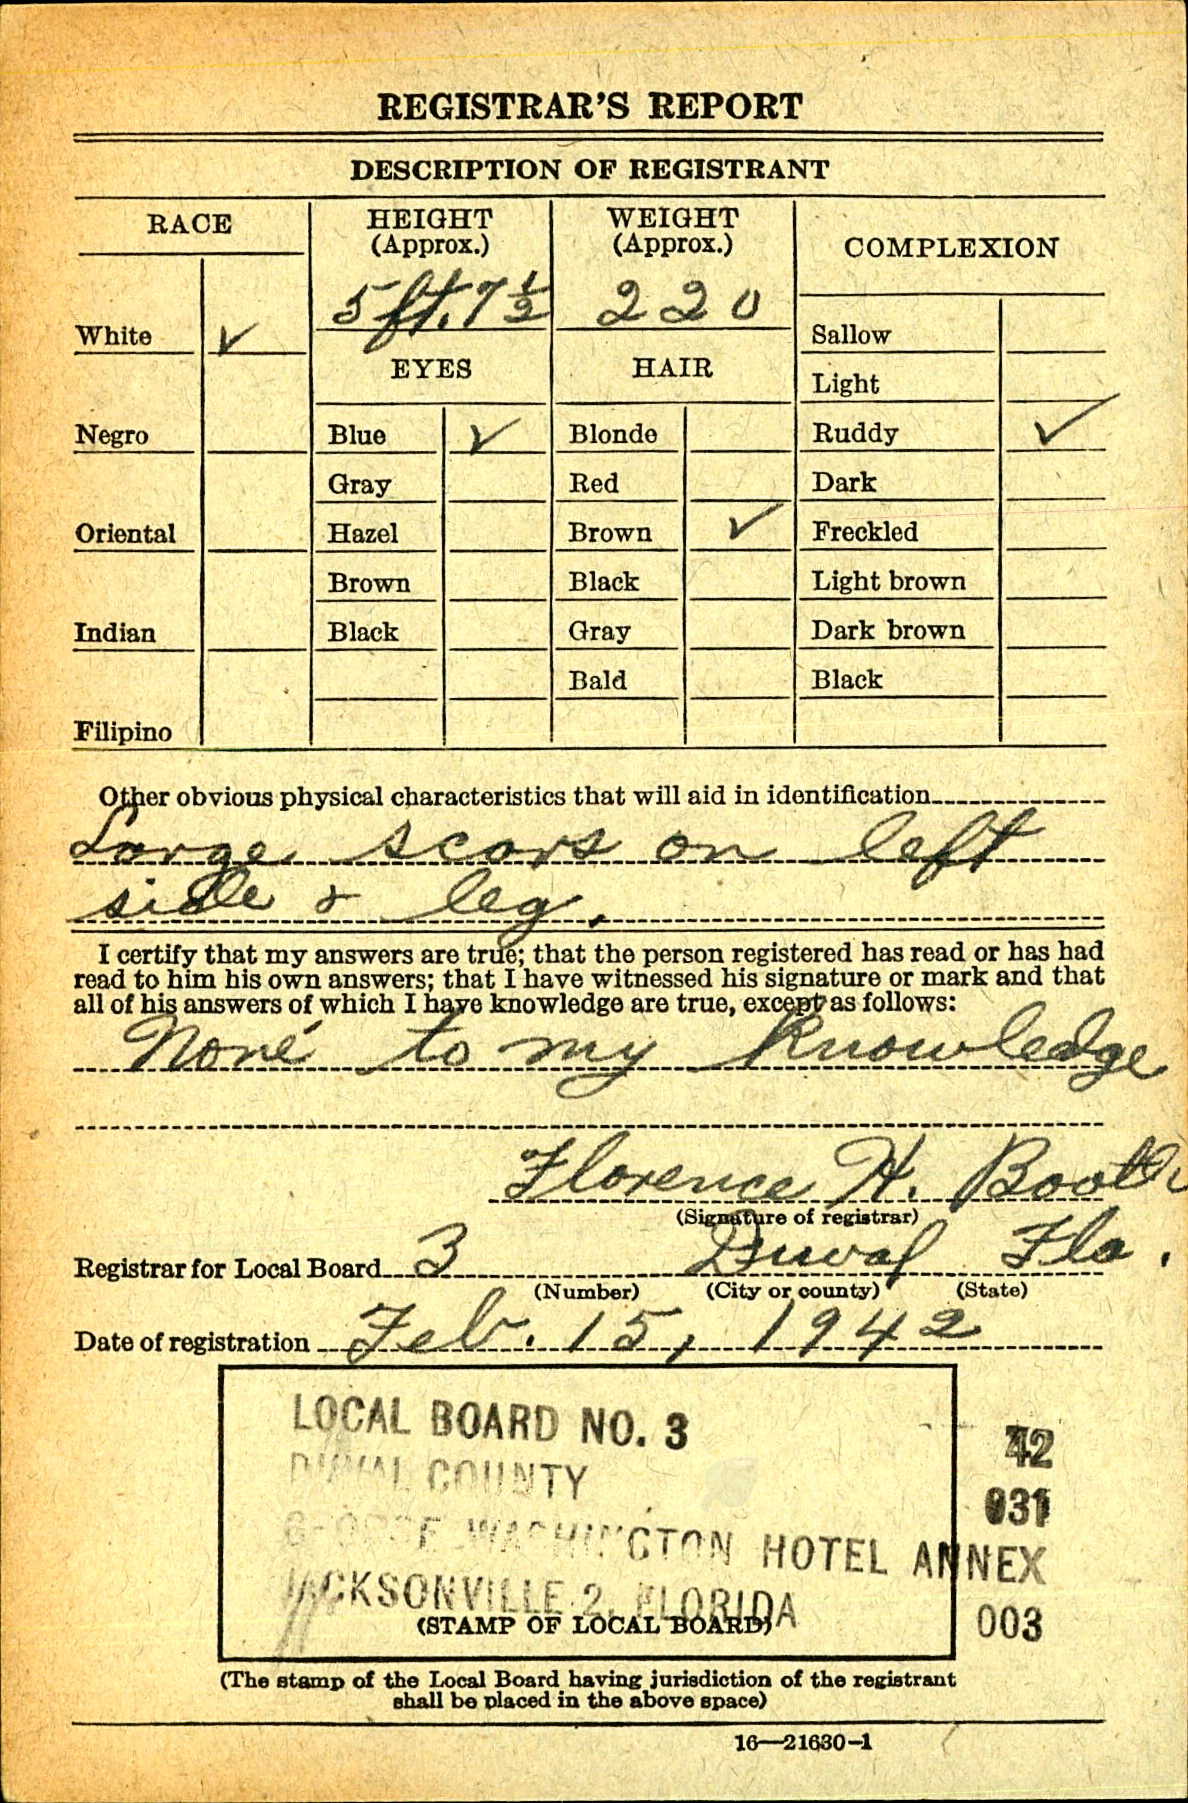 REGISTRAR'S REPORT
DESCRIPTION OF REGISTRANT
RACE
HEIGHT
(Approx.)
WEIGHT
(Approx.)
COMPLEXION
5 ft. 7 1/2
220
White ✓
Sallow
EYES
HAIR
Light
Negro
Blue ✓
Blonde
Ruddy ✓
Gray
Red
Dark
Oriental
Hazel
Brown ✓
Freckled
Brown
Black
Light brown
Indian
Black
Gray
Dark brown
Bald
Black
Filipino
Other obvious physical characteristics that will aid in identification
Large scars on left
side & leg.
I certify that my answers are true; that the person registered has read or has had
read to him his own answers; that I have witnessed his signature or mark and that
all of his answers of which I have knowledge are true, except as follows:
None to my knowledge
Florence H. Booth
(Signature of registrar)
Registrar for Local Board 3 Duval Fla.
(Number) (City or county) (State)
Date of registration Feb. 15, 1942
LOCAL BOARD NO. 3
42
DUVAL COUNTY
031
WASHINGTON HOTEL ANNEX
JACKSONVILLE 2, FLORIDA
003
(STAMP OF LOCAL BOARD)
(The stamp of the Local Board having jurisdiction of the registrant
shall be placed in the above space)
16—21630-1